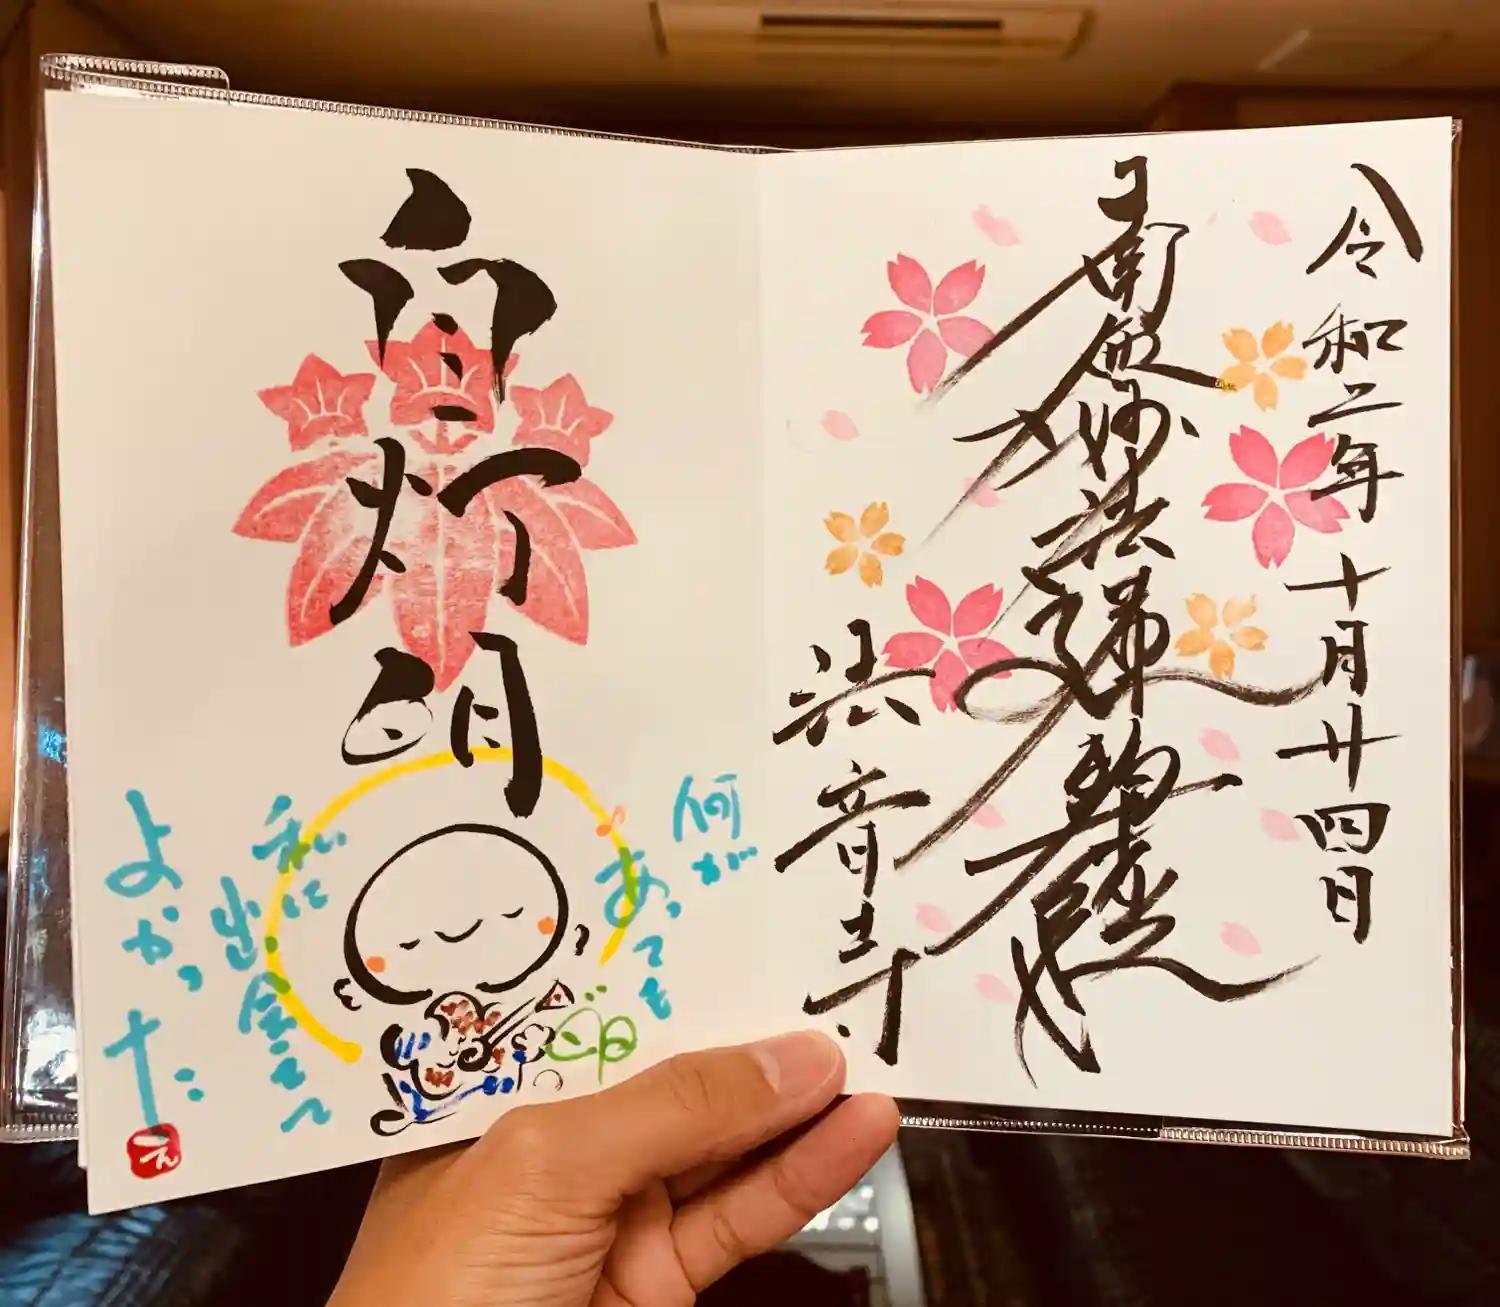 令和二年十月廿四日
南無妙法蓮華経
法音寺
自灯明
何が
あっても
私に
出会えて
よかった
え